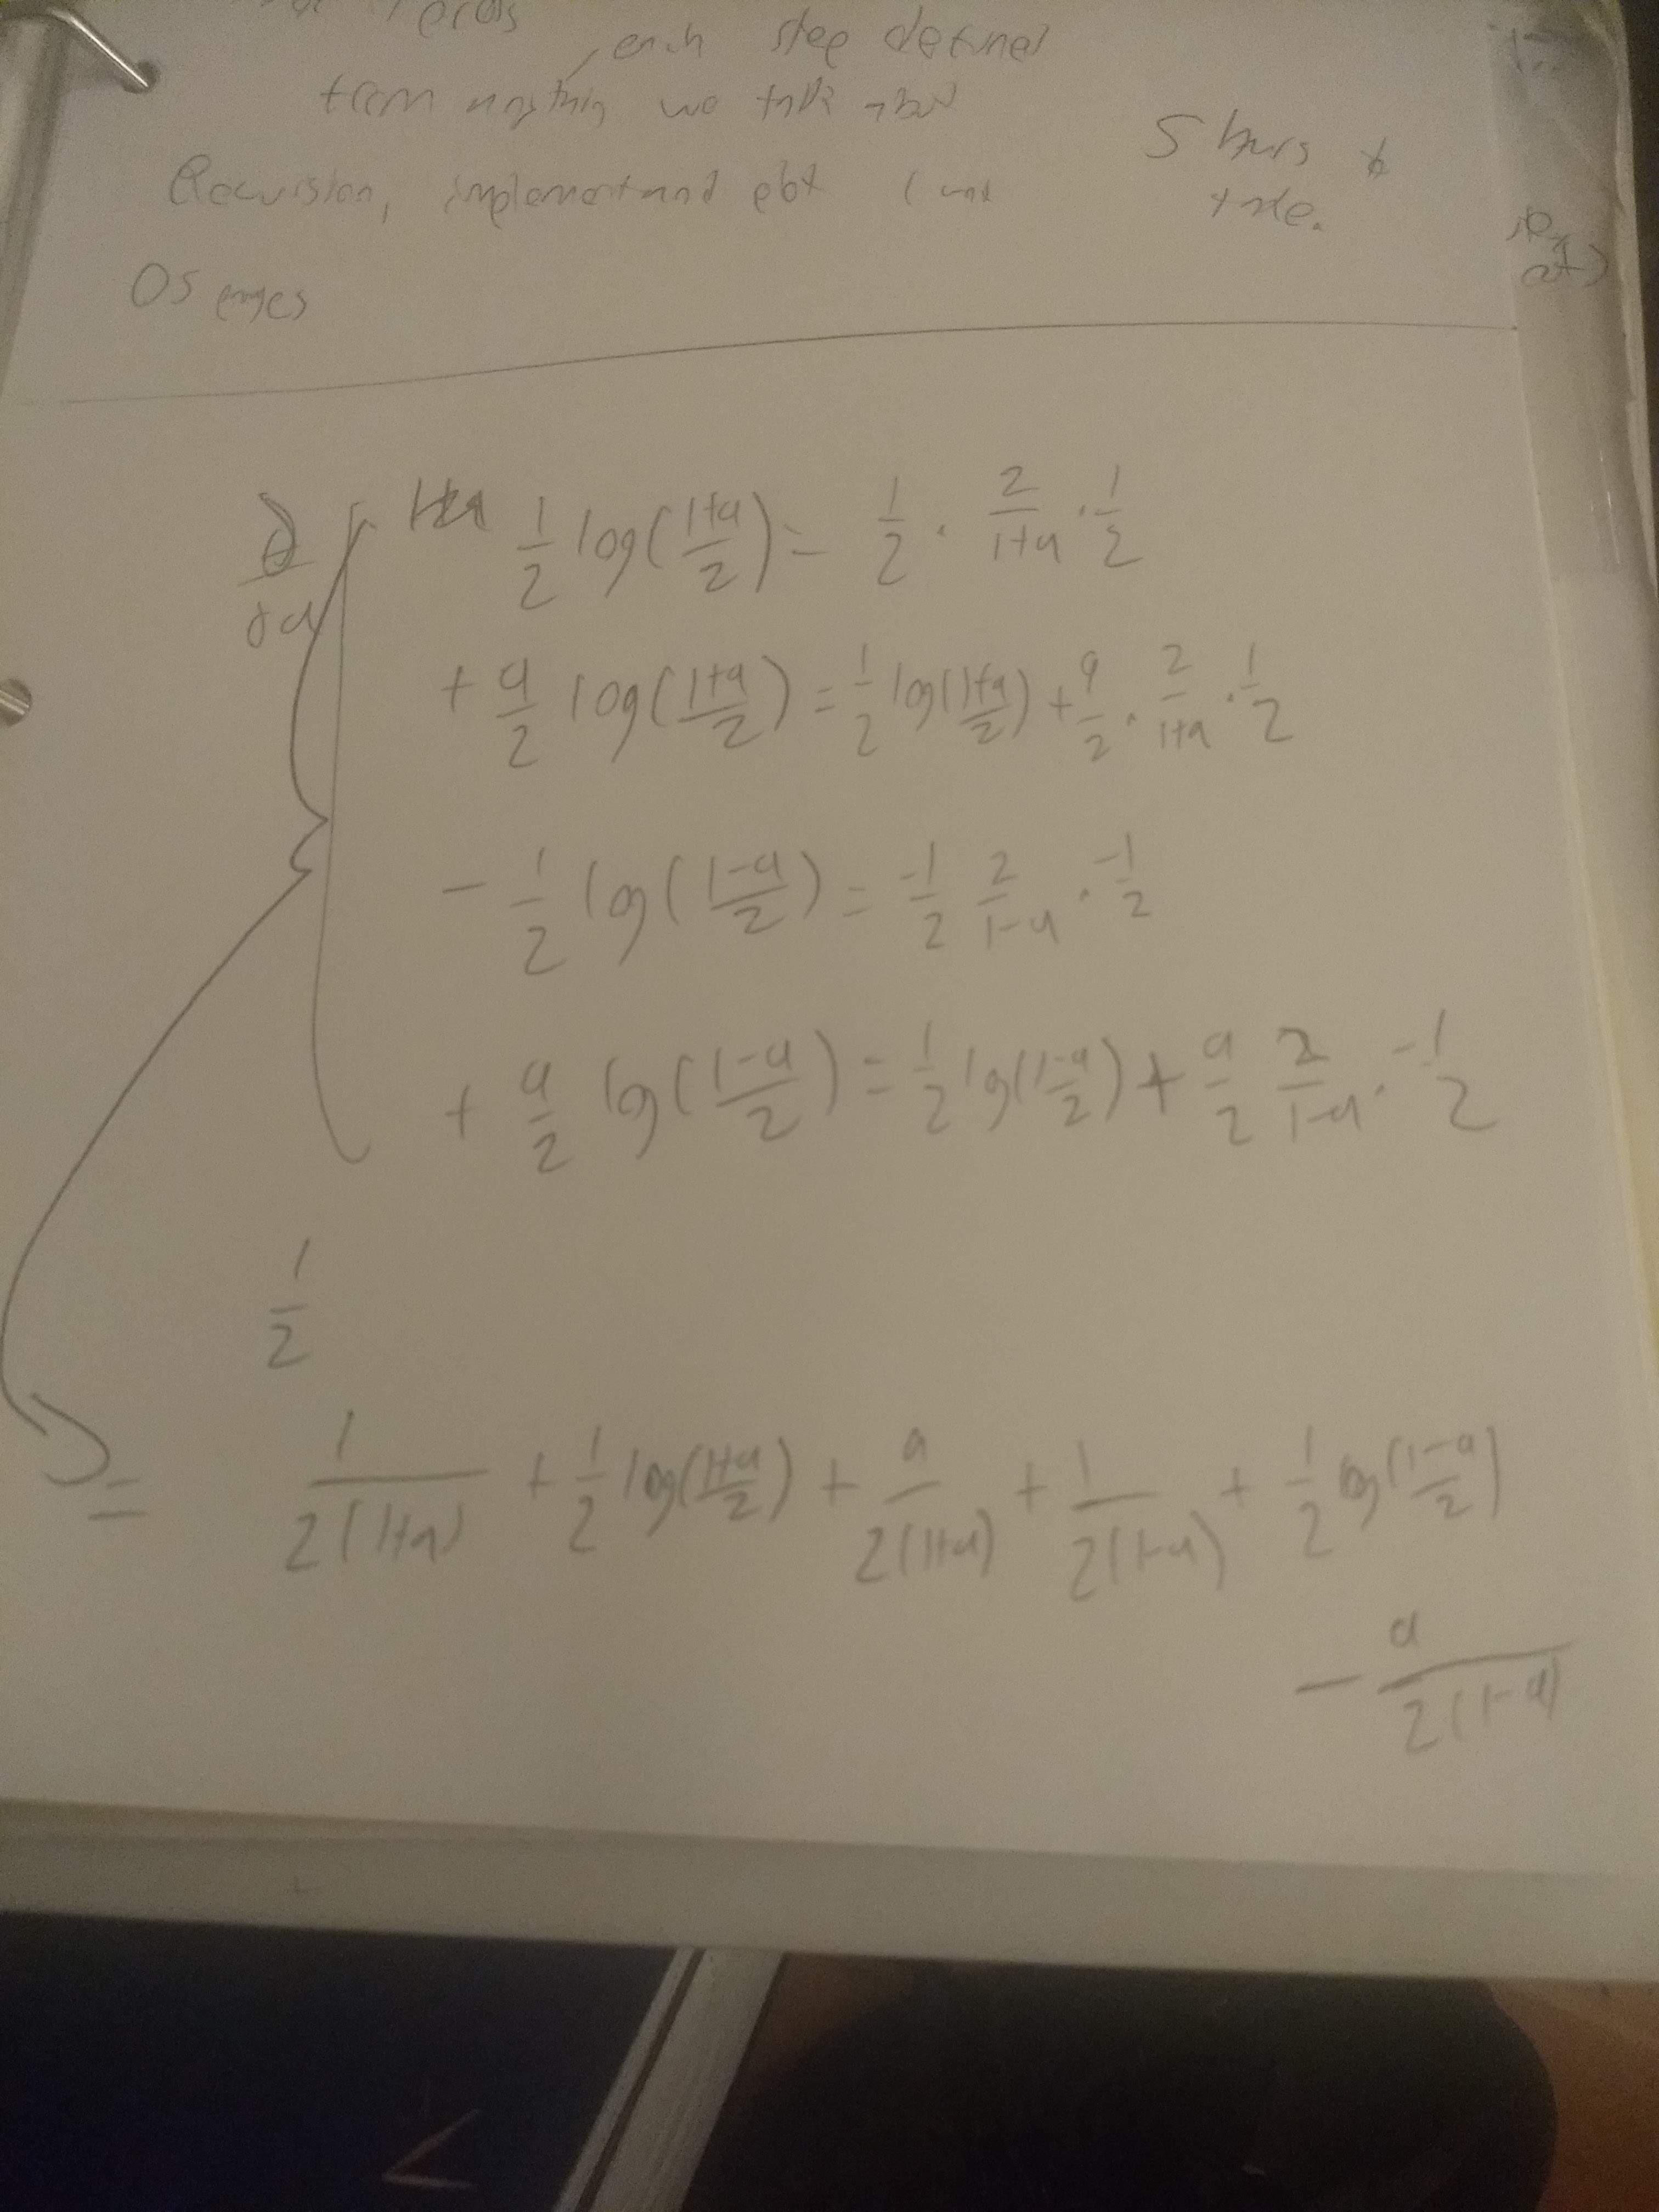 each step defined
from anything we talk about
Recursion, implement and
5 hours to
OS
∂/∂a 1/2 log((1+a)/2) = 1/2 · 2/(1+a) · 1/2
+ a/2 log((1+a)/2) = 1/2 log((1+a)/2) + a/2 · 2/(1+a) · 1/2
- 1/2 log((1-a)/2) = -1/2 2/(1-a) · -1/2
+ a/2 log((1-a)/2) = 1/2 log((1-a)/2) + a/2 2/(1-a) · -1/2
1/2
= 1/(2(1+a)) + 1/2 log((1+a)/2) + a/(2(1+a)) + 1/(2(1-a)) + 1/2 log((1-a)/2)
- a/(2(1-a))